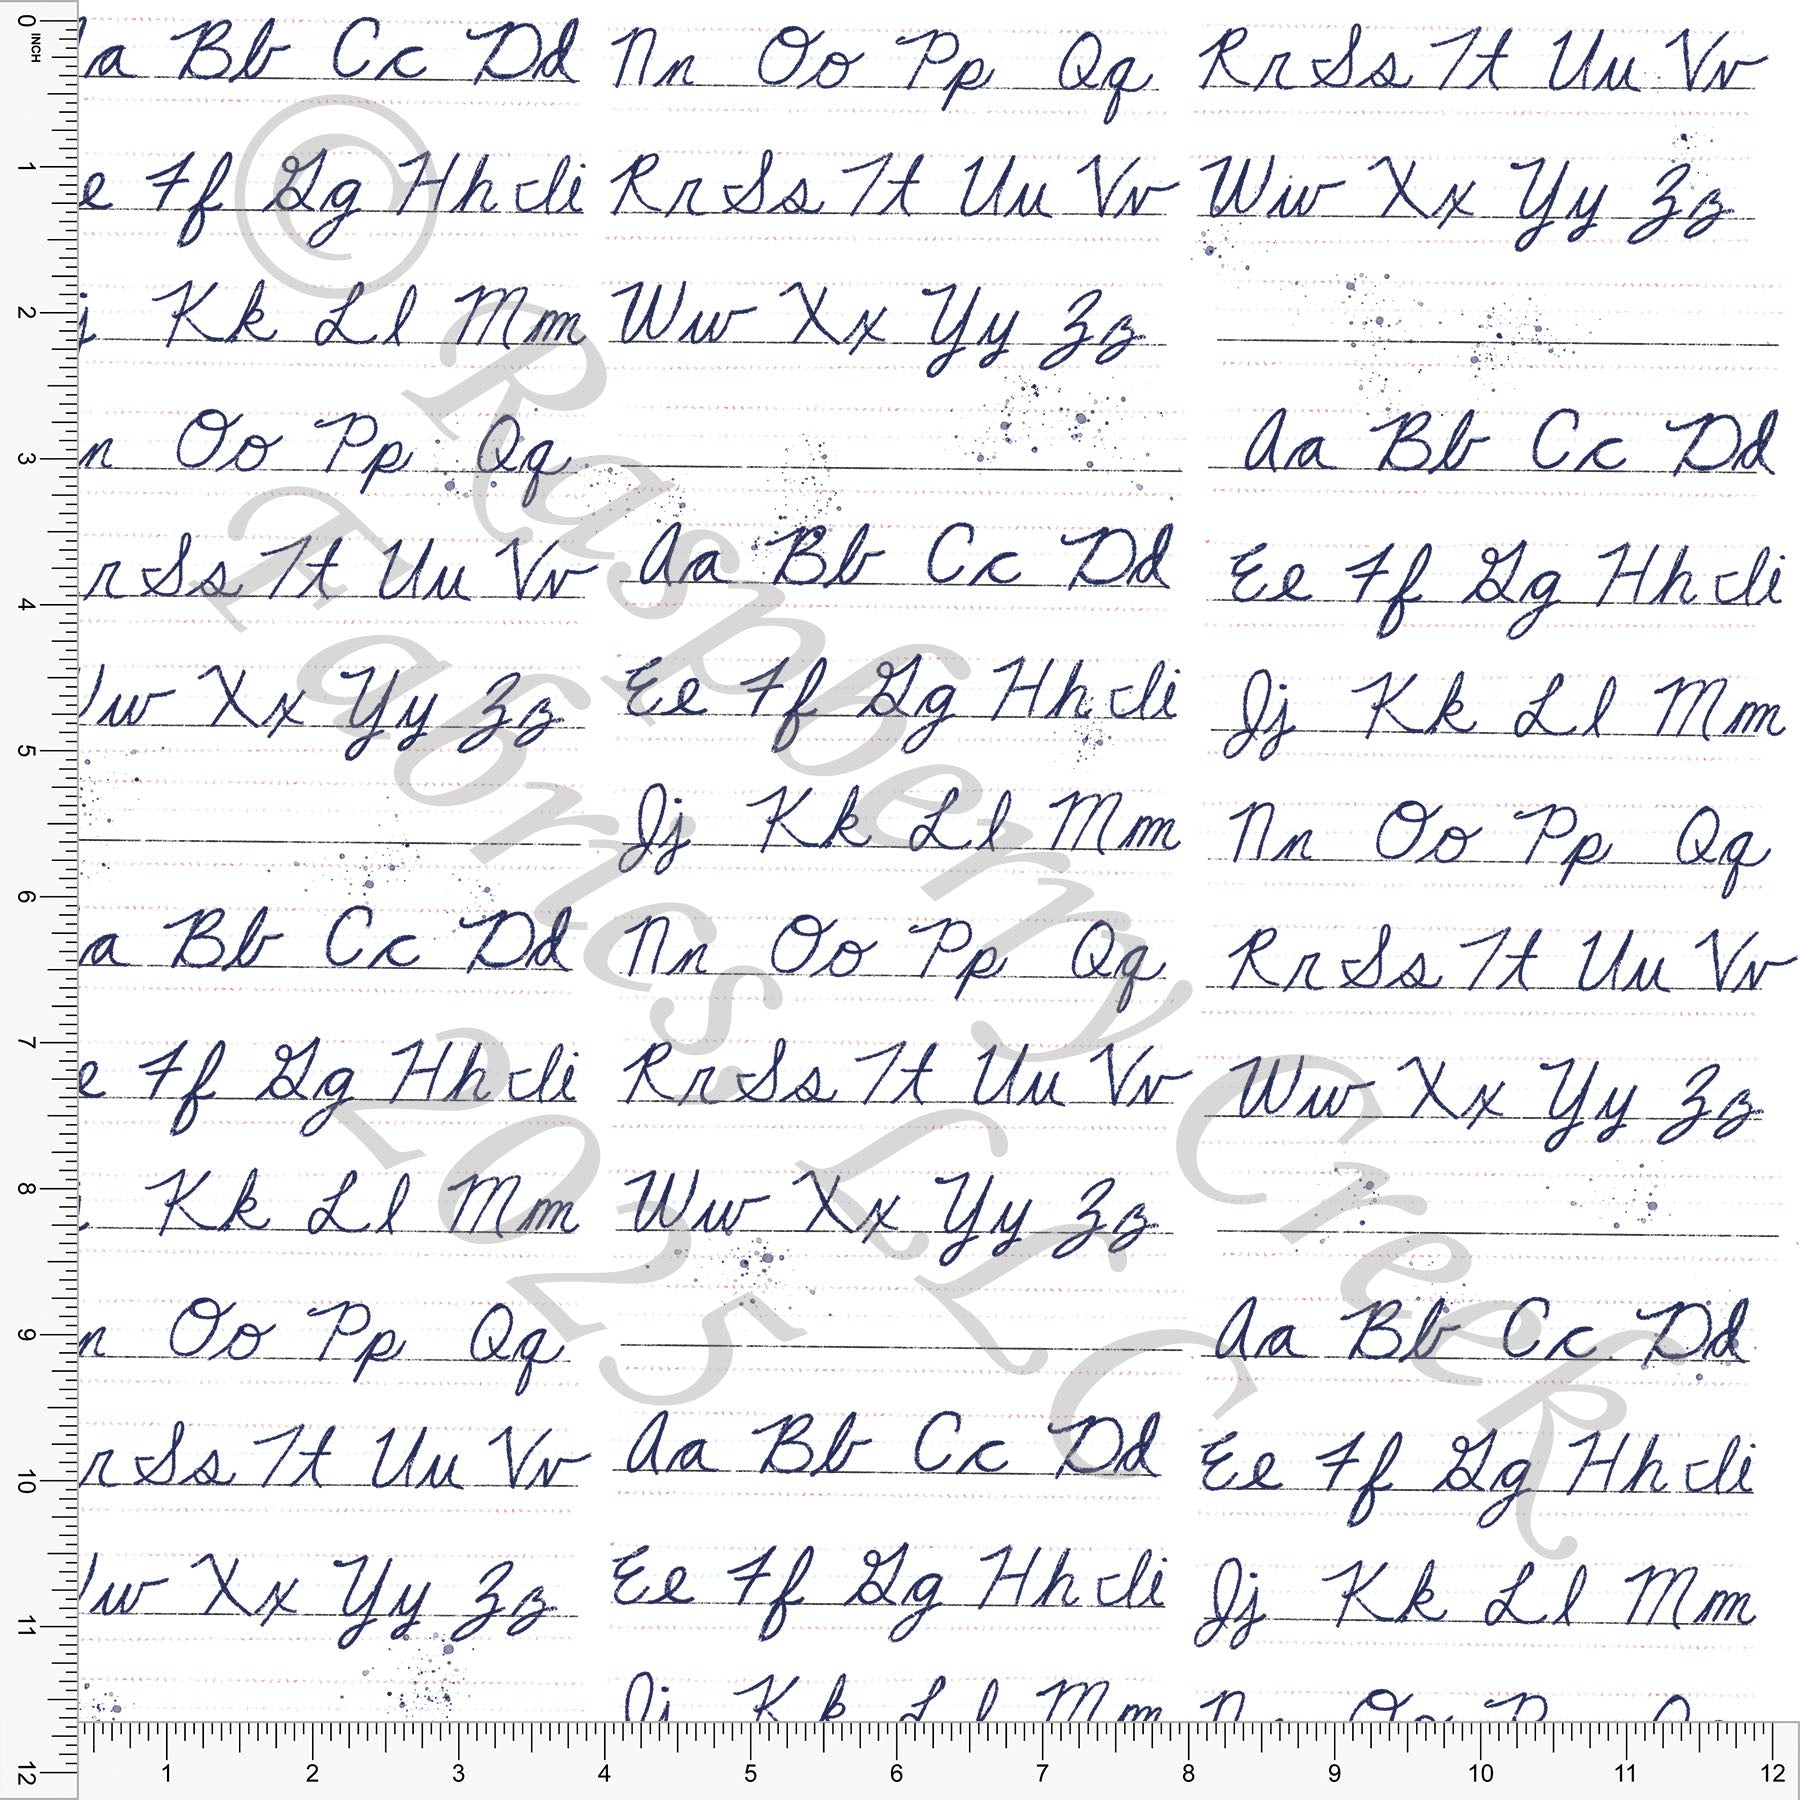 0 INCH
1
2
3
4
5
6
7
8
9
10
11
12
a Bb Cc Dd
e Ff Gg Hh Ii
j Kk Ll Mm
n Oo Pp Qq
r Ss Tt Uu Vv
w Xx Yy Zz
a Bb Cc Dd
e Ff Gg Hh Ii
Kk Ll Mm
n Oo Pp Qq
r Ss Tt Uu Vv
w Xx Yy Zz
Nn Oo Pp Qq
Rr Ss Tt Uu Vv
Ww Xx Yy Zz
Aa Bb Cc Dd
Ee Ff Gg Hh Ii
Jj Kk Ll Mm
Nn Oo Pp Qq
Rr Ss Tt Uu Vv
Ww Xx Yy Zz
Aa Bb Cc Dd
Ee Ff Gg Hh Ii
Jj Kk Ll Mm
Rr Ss Tt Uu Vv
Ww Xx Yy Zz
Aa Bb Cc Dd
Ee Ff Gg Hh Ii
Jj Kk Ll Mm
Nn Oo Pp Qq
Rr Ss Tt Uu Vv
Ww Xx Yy Zz
Aa Bb Cc Dd
Ee Ff Gg Hh Ii
Jj Kk Ll Mm
© Raspberry Creek
Fabrics LLC
2025
1 2 3 4 5 6 7 8 9 10 11 12